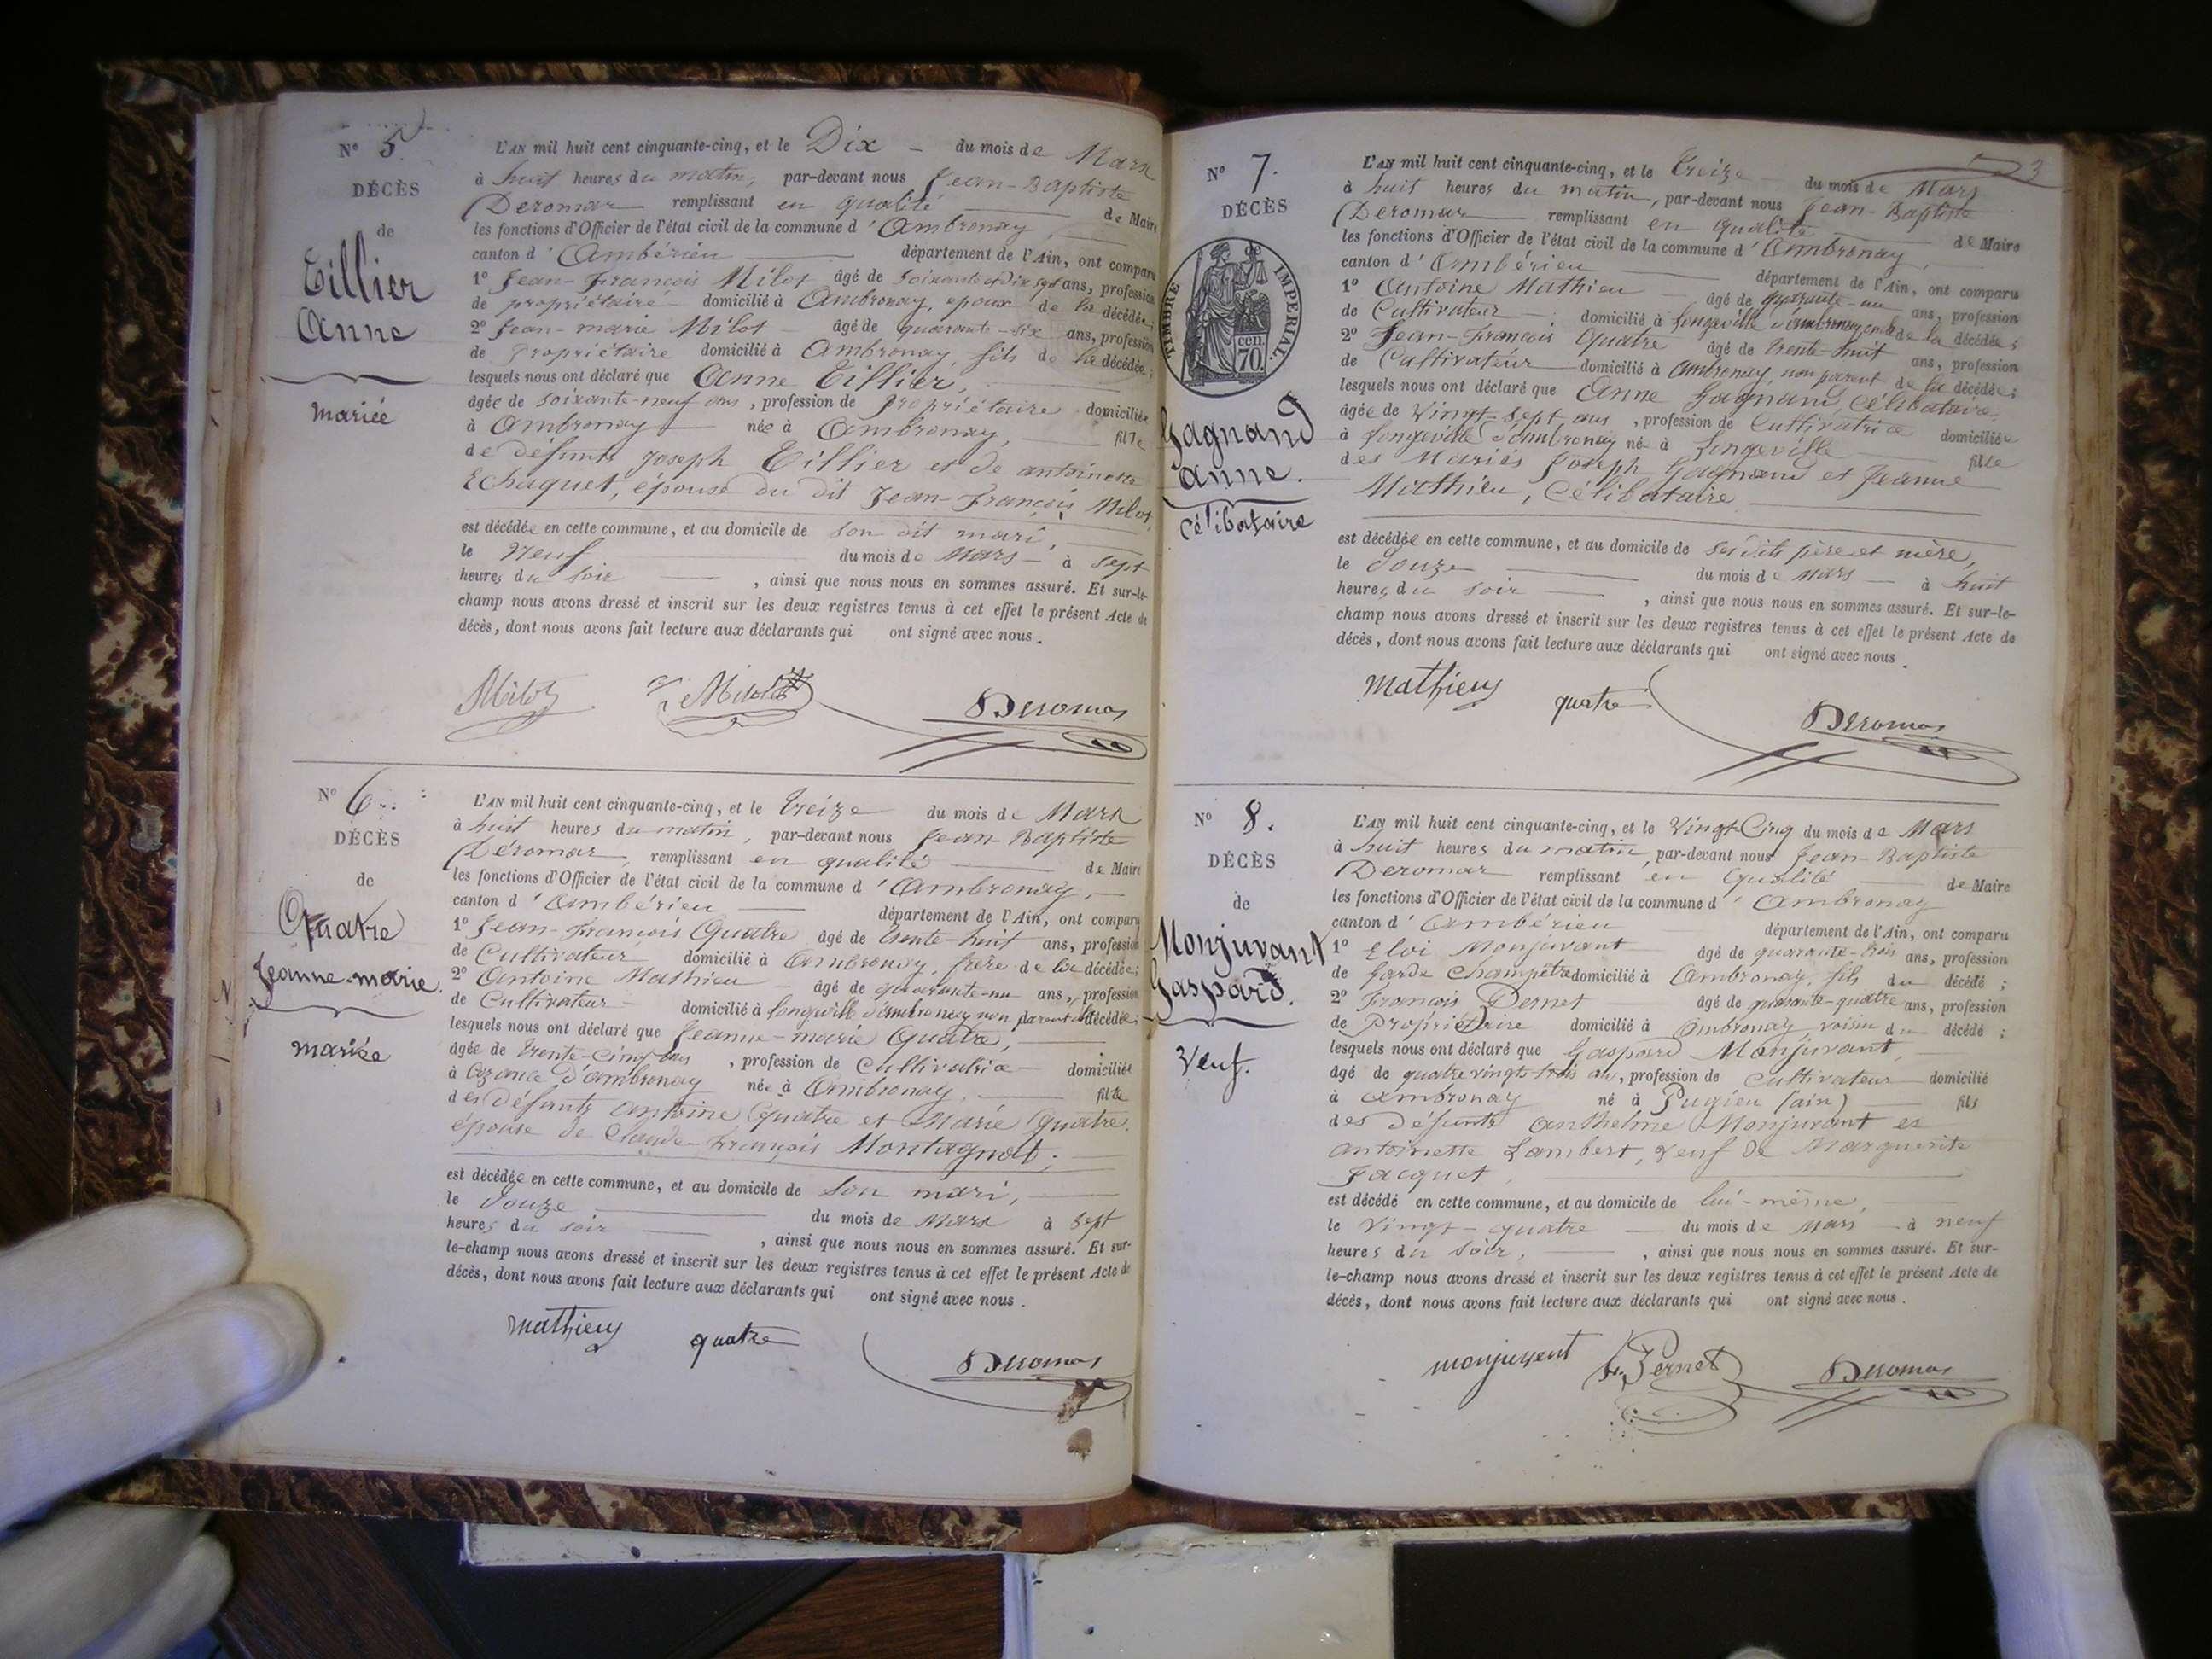 N° 5
DÉCÈS
de
Tillier
Anne
mariée
L'AN mil huit cent cinquante-cinq, et le Dix du mois de Mars
à huit heures du matin, par-devant nous Jean-Baptiste
Deromas remplissant en qualité de Maire
les fonctions d'Officier de l'état civil de la commune d'Ambronay,
canton d'Ambérieu département de l'Ain, ont comparu
1° Jean-François Milot âgé de soixante et dix sept ans, profession
de propriétaire domicilié à Ambronay, epoux de la décédée;
2° Jean-marie Milot âgé de quarante-six ans, profession
de Propriétaire domicilié à Ambronay, fils de la décédée;
lesquels nous ont déclaré que Anne Tillier,
âgée de soixante-neuf ans, profession de propriétaire domiciliée
à Ambronay née à Ambronay, fille
de défunts Joseph Tillier et de antoinette
Echaquet, épouse du dit Jean-François Milot,
est décédée en cette commune, et au domicile de son dit mari,
le Neuf du mois de Mars à sept
heures du soir, ainsi que nous nous en sommes assuré. Et sur-le-
champ nous avons dressé et inscrit sur les deux registres tenus à cet effet le présent Acte de
décès, dont nous avons fait lecture aux déclarants qui ont signé avec nous.
Milot Milot Deromas
N° 6
DÉCÈS
de
Quatre
Jeanne-marie.
mariée
L'AN mil huit cent cinquante-cinq, et le treize du mois de Mars
à huit heures du matin, par-devant nous Jean Baptiste
Déromas, remplissant en qualité de Maire
les fonctions d'Officier de l'état civil de la commune d'Ambronay,
canton d'Ambérieu département de l'Ain, ont comparu
1° Jean-François Quatre âgé de trente-huit ans, profession
de Cultivateur domicilié à Ambronay, frère de la décédée;
2° Antoine Mathieu âgé de quarante-un ans, profession
de Cultivateur domicilié à Longeville d'ambronay non parent de la décédée;
lesquels nous ont déclaré que Jeanne-marie Quatre,
âgée de trente-cinq ans, profession de Cultivatrice domiciliée
à d'ambronay née à Ambronay, fille
des défunts antoine Quatre et Marie Quatre.
épouse de Claude-François Montagnat;
est décédée en cette commune, et au domicile de son mari,
le douze du mois de Mars à sept
heures du soir, ainsi que nous nous en sommes assuré. Et sur-
le-champ nous avons dressé et inscrit sur les deux registres tenus à cet effet le présent Acte de
décès, dont nous avons fait lecture aux déclarants qui ont signé avec nous.
mathieu quatre Deromas
3
N° 7.
DÉCÈS
de
TIMBRE IMPERIAL.
70 cen.
Gagnand
anne.
célibataire
L'AN mil huit cent cinquante-cinq, et le treize du mois de Mars
à huit heures du matin, par-devant nous Jean-Baptiste
Deromas remplissant en qualité de Maire
les fonctions d'Officier de l'état civil de la commune d'Ambronay,
canton d'Ambérieu département de l'Ain, ont comparu
1° Antoine Mathieu âgé de quarante-un ans, profession
de Cultivateur domicilié à Longeville d'ambronay oncle de la décédée;
2° Jean-François Quatre âgé de trente-huit ans, profession
de Cultivateur domicilié à Ambronay, non parent de la décédée;
lesquels nous ont déclaré que Anne Gagnand, célibataire
âgée de vingt-sept ans, profession de Cultivatrice domiciliée
à Longeville d'ambronay né à Longeville fille
des Mariés Joseph Gagnand et Jeanne
Mathieu, célibataire
est décédée en cette commune, et au domicile de ses dits père et mère,
le douze du mois de Mars à huit
heures du soir, ainsi que nous nous en sommes assuré. Et sur-le-
champ nous avons dressé et inscrit sur les deux registres tenus à cet effet le présent Acte de
décès, dont nous avons fait lecture aux déclarants qui ont signé avec nous.
mathieu quatre Deromas
N° 8.
DÉCÈS
de
Monjuvant
Gaspard.
Veuf.
L'AN mil huit cent cinquante-cinq, et le Vingt-Cinq du mois de Mars
à huit heures du matin, par-devant nous Jean-Baptiste
Deromas remplissant en Qualité de Maire
les fonctions d'Officier de l'état civil de la commune d'Ambronay
canton d'Ambérieu département de l'Ain, ont comparu
1° Eloi Monjuvant âgé de quarante-trois ans, profession
de garde Champêtre domicilié à Ambronay, fils du décédé;
2° François Pernet âgé de quarante-quatre ans, profession
de Propriétaire domicilié à Ambronay, voisin du décédé;
lesquels nous ont déclaré que Gaspard Monjuvant,
âgé de quatre vingt-trois ans, profession de Cultivateur domicilié
à Ambronay né à Pugieu (ain) fils
des défunts Anthelme Monjuvant et
antoinette Lambert, veuf de Marguerite
Jacquet,
est décédé en cette commune, et au domicile de lui-même,
le vingt-quatre du mois de Mars à neuf
heures du soir, ainsi que nous nous en sommes assuré. Et sur-
le-champ nous avons dressé et inscrit sur les deux registres tenus à cet effet le présent Acte de
décès, dont nous avons fait lecture aux déclarants qui ont signé avec nous.
monjuvent fr. Pernet Deromas